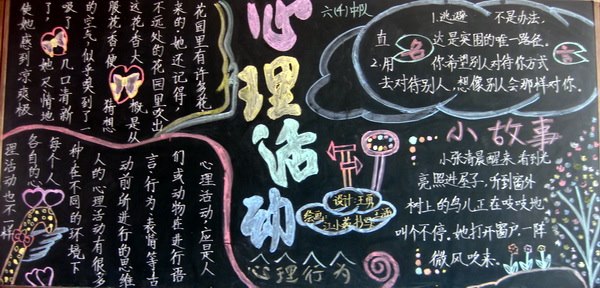 六(4)中队
心理活动
花园里有许多花
来的。她还记得，
不远处的花园里发出
这花香大概是从
花香使 猜想
的空气，似乎 到了一
吸了几口清新
了，她尽情地
使她感到凉爽极
心理活动，应是人
们或动物在进行语
言、行为、表情等活
动前所进行的思维
人的心理活动有很多
种在不同的环境下
每个人
各自的心
理活动也不一样
名言
1.逃避 不是办法，
直 这是突围的唯一路径。
2.用 你希望别人对待你方式
去对待别人，想像别人会那样对你。
小故事
小张清晨醒来，有阳光
亮照进屋子，听到窗外
树上的鸟儿正在吱吱地
叫个不停。她打开窗户一阵
微风吹来，
设计:王勇
绘画:
心理行为